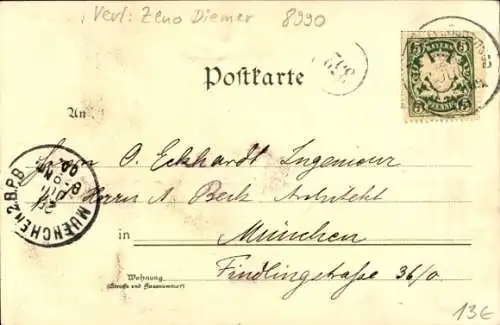 Verl: Zeno Diemer 8990
BAYERN
5 5
PFENNIG
Postkarte
An
Herrn O. Eckhardt Ingenieur
Herrn A. Beck Architekt
in München
Wohnung
(Straße und Hausnummer)
Findlingstraße 36/0.
MUENCHEN 2.B.P.B.
13€